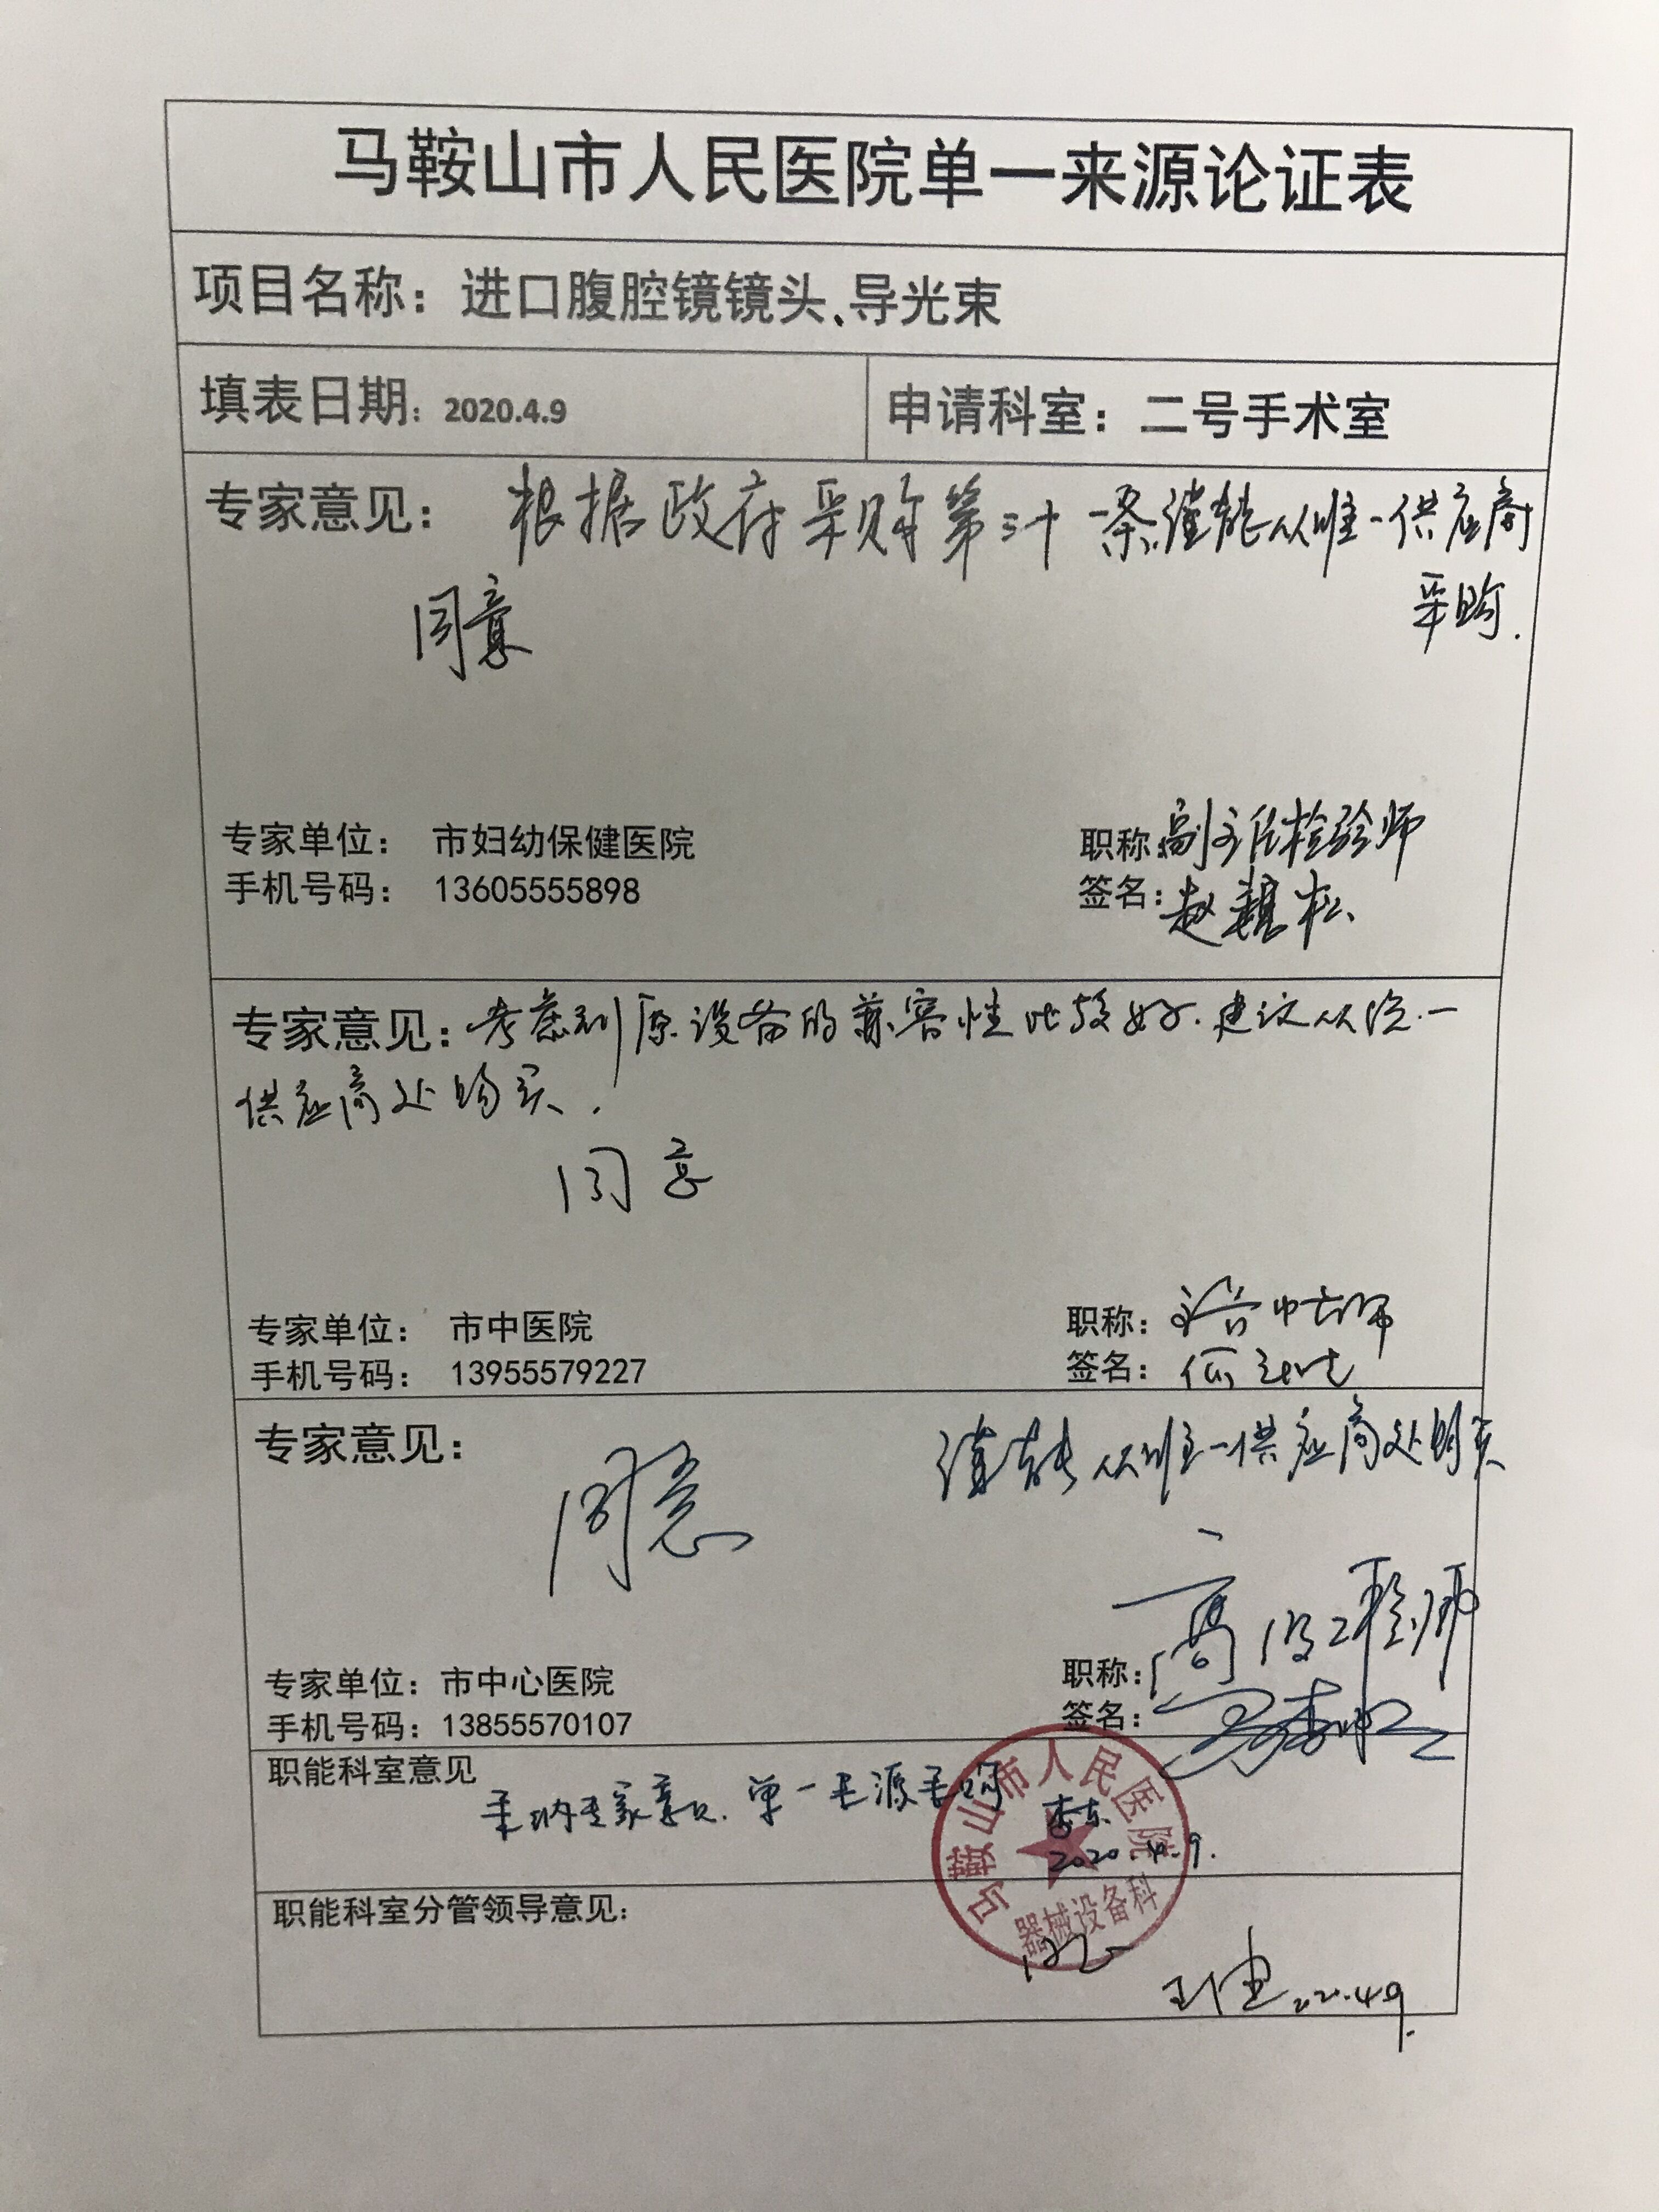 马鞍山市人民医院单一来源论证表
项目名称：进口腹腔镜镜头、导光束
填表日期：2020.4.9 申请科室：二号手术室
专家意见： 根据政府采购第三十一条谨能从唯一供应商
同意 采购.
专家单位： 市妇幼保健医院 职称：副主任检验师
手机号码： 13605555898 签名：赵 松
专家意见：考虑到原设备的兼容性比较好.建议从 一
供应商处购买.
同意
专家单位： 市中医院 职称： 师
手机号码： 13955579227 签名：
专家意见： 从唯一供应商处购买
同意
专家单位：市中心医院 职称：高级工程师
手机号码：13855570107 签名：
职能科室意见
采纳专家意见.单一来源采购 李东
2020.4.9.
马鞍山市人民医院
器械设备科
职能科室分管领导意见：